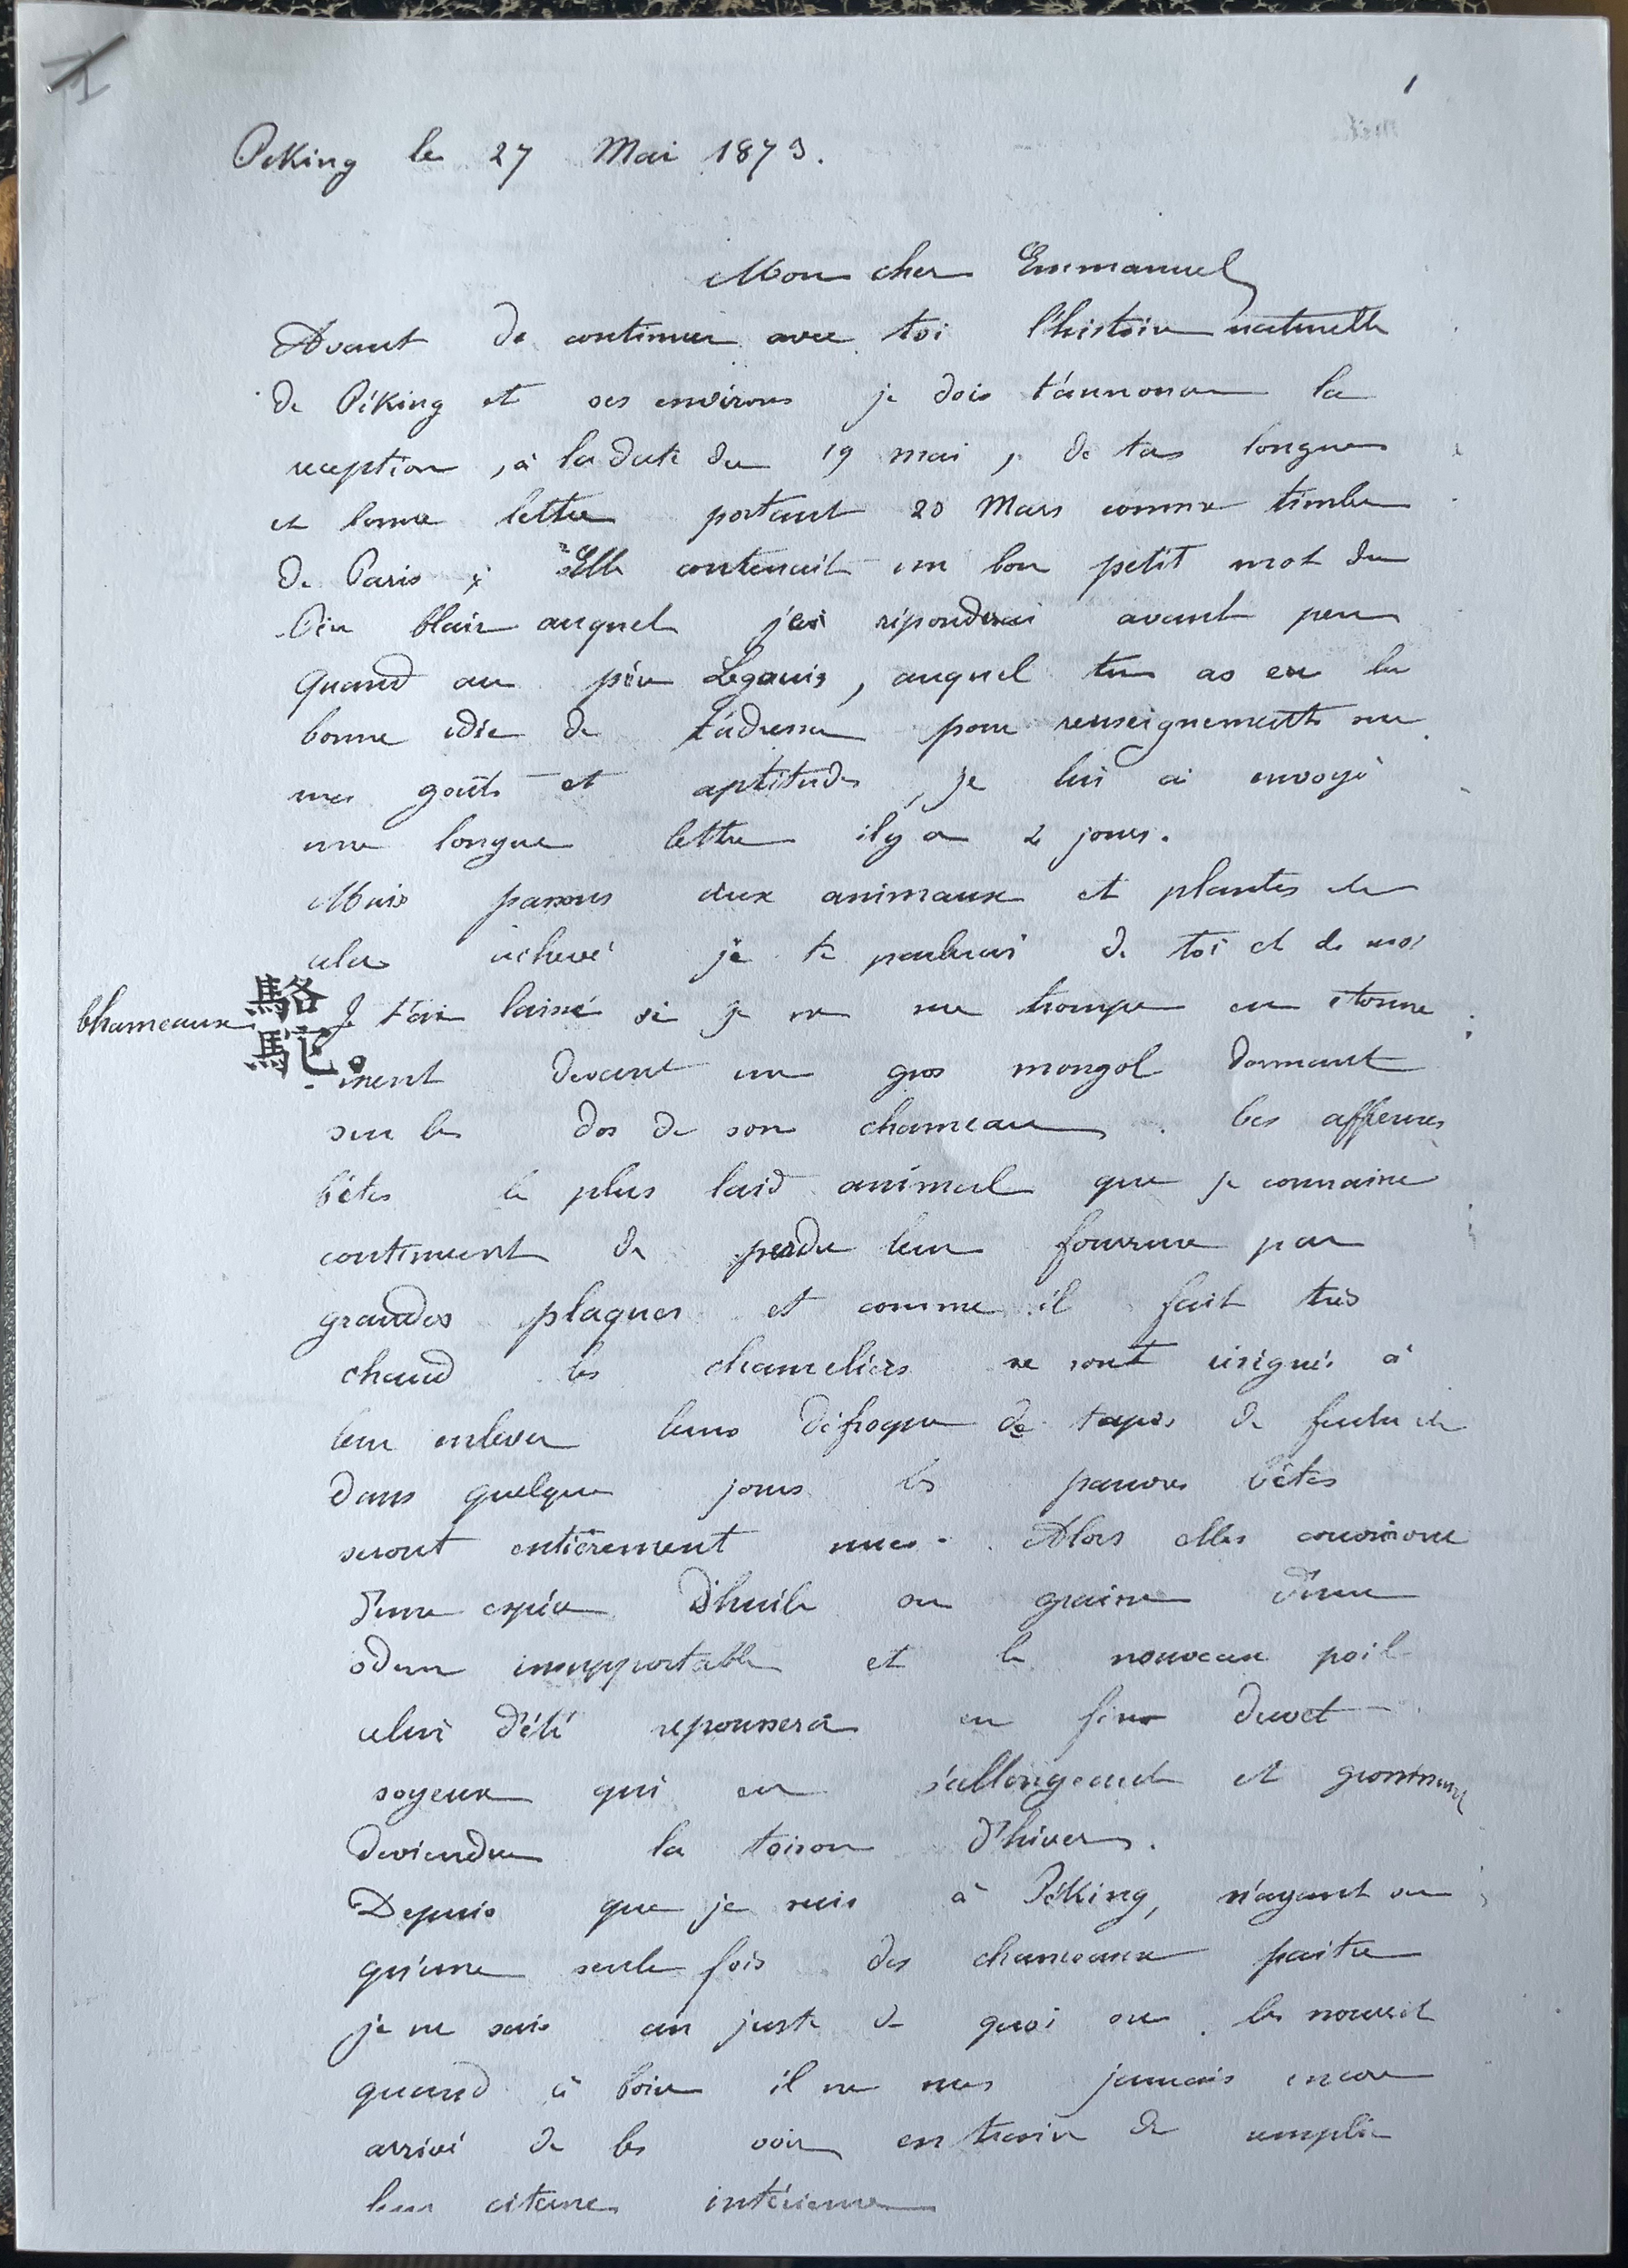 1
Peking le 27 Mai 1873.
Mon cher Emmanuel
Avant de continuer avec toi l'histoire naturelle
de Péking et ses environs je dois t'annoncer la
reception, à la date du 19 mai, de ta longue
et bonne lettre portant 20 Mars comme timbre
de Paris ; Elle contenait un bon petit mot du
Père Clair auquel je répondrai avant peu
Quand au père Legouis, auquel tu as eu la
bonne idée de t'adresser pour renseignements sur
mes goûts et aptitudes, je lui ai envoyé
une longue lettre il y a 2 jours.
Mais passons aux animaux et plantes et
cela achevé je te parlerai de toi et de moi
Chameaux 駱駝。 Je t'ai laissé si je ne me trompe en étonne
-ment devant un gros mongol dormant
sur le dos de son chameau. Ces affreuses
bêtes le plus laid animal que je connaisse
continuent de perdre leur fourrure par
grandes plaques et comme il fait très
chaud les chameliers se sont résignés à
leur enlever leurs défroque de tapis de feutre et
dans quelque jours les pauvres bêtes
seront entièrement nues. Alors elles
d'une espèce d'huile ou graisse d'une
odeur insupportable et le nouveau poil
celui d'été repoussera en fin duvet
soyeux qui en s'allongeant et grossissant
deviendra la toison d'hiver.
Depuis que je suis à Péking, n'ayant vu
qu'une seule fois des chameaux paitre
je ne sais au juste de quoi on les nourrit
quand à boire il ne mes jamais encore
arrivé de les voir en train de remplir
leur citerne intérieure